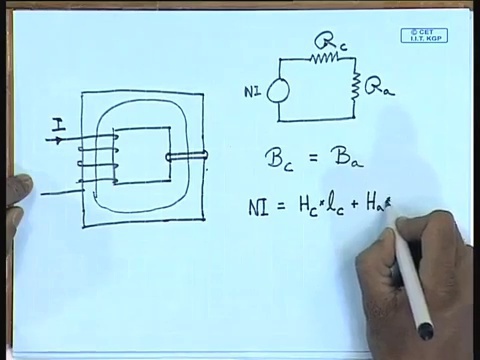 © CET
I.I.T. KGP
I
NI
R_c
R_a
B_c = B_a
NI = H_c * l_c + H_a *